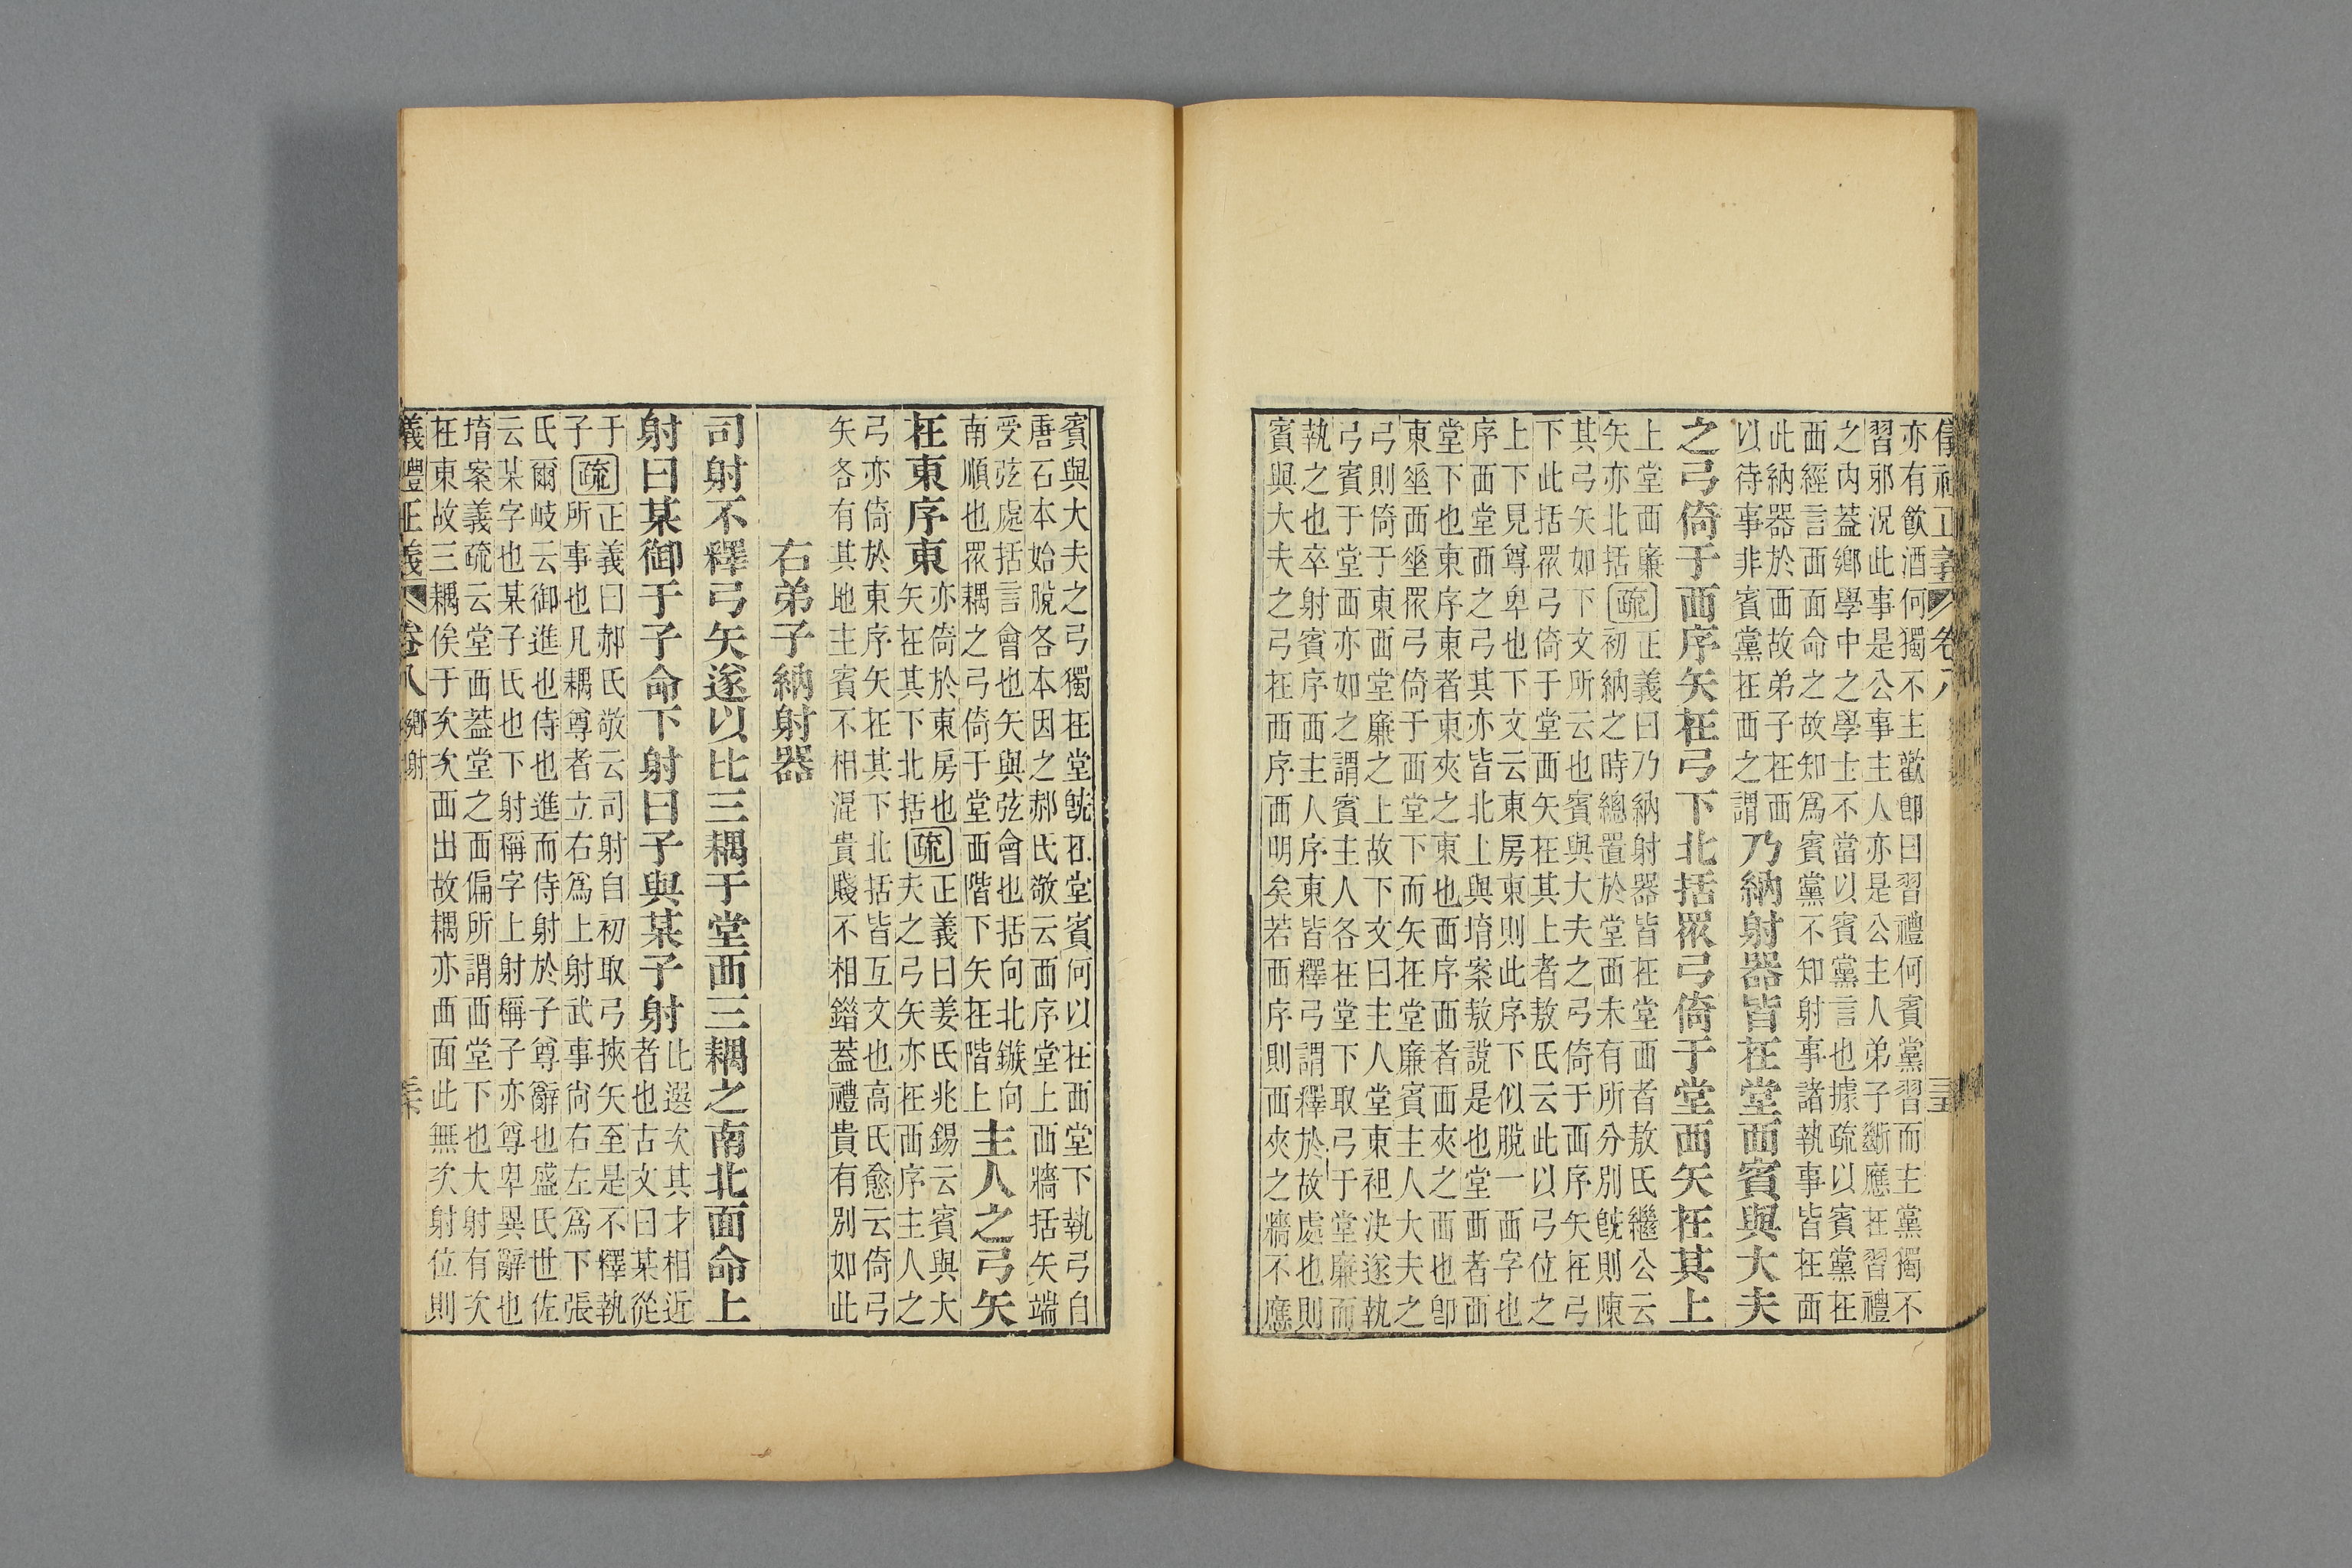 儀禮正義 卷八 三五
亦有飮酒何獨不主歡卽曰習禮何賓黨習而主黨獨不
習邪況此事是公事主人亦是公主人弟子斷應在習禮
之內葢鄕學中之學士不當以賓黨言也據疏以賓黨在
西經言西面命之故知爲賓黨不知射事諸執事皆在西
此納器於西故弟子在西
以待事非賓黨在西之謂
乃納射器皆在堂西賓與大夫
之弓倚于西序矢在弓下北括眾弓倚于堂西矢在其上
上堂西廉
矢亦北括
疏
正義曰乃納射器皆在堂西者敖氏繼公云
初納之時總置於堂西未有所分別旣則陳
其弓矢如下文所云也賓與大夫之弓倚于西序矢在弓
下此括眾弓倚于堂西矢在其上者敖氏云此以弓位之
上下見尊卑也下文云東房東則此序下似脫一西字也
序西堂西之弓其亦皆北上與堉案敖說是也堂西者西
堂下也東序東者東夾之東也西序西者西夾之西也卽
東坐西坐眾弓倚于西堂下而矢在堂廉賓主人大夫之
弓則倚于東西堂廉之上故下文曰主人堂東袒決遂執
弓賓于堂西亦如之謂賓主人各在堂下取弓于堂廉而
執之也卒射賓序西主人序東皆釋弓謂釋於故處也則
賓與大夫之弓在西序西明矣若西序則西夾之牆不應
賓與大夫之弓獨在堂旣在堂賓何以在西堂下執弓自
唐石本始脫各本因之郝氏敬云西序堂上西牆括矢端
受弦處括言會也矢與弦會也括向北鏃向
南順也眾耦之弓倚于堂西階下矢在階上
主人之弓矢
在東序東
亦倚於東房也
矢在其下北括
疏
正義曰姜氏兆錫云賓與大
夫之弓矢亦在西序主人之
弓亦倚於東序矢在其下北括皆互文也高氏愈云倚弓
矢各有其地主賓不相混貴賤不相錯葢禮貴有別如此
右弟子納射器
司射不釋弓矢遂以比三耦于堂西三耦之南北面命上
射曰某御于子命下射曰子與某子射
比選次其才相近
者也古文曰某從
于
子
疏
正義曰郝氏敬云司射自初取弓挾矢至是不釋執
所事也凡耦尊者立右爲上射武事尙右左爲下張
氏爾岐云御進也侍也進而侍射於子尊辭也盛氏世佐
云某字也某子氏也下射稱字上射稱子亦尊卑異辭也
堉案義疏云堂西葢堂之西偏所謂西堂下也大射有次
在東故三耦俟于次次西出故耦亦西面此無次射位則
義禮正義 卷八 鄕射 三六